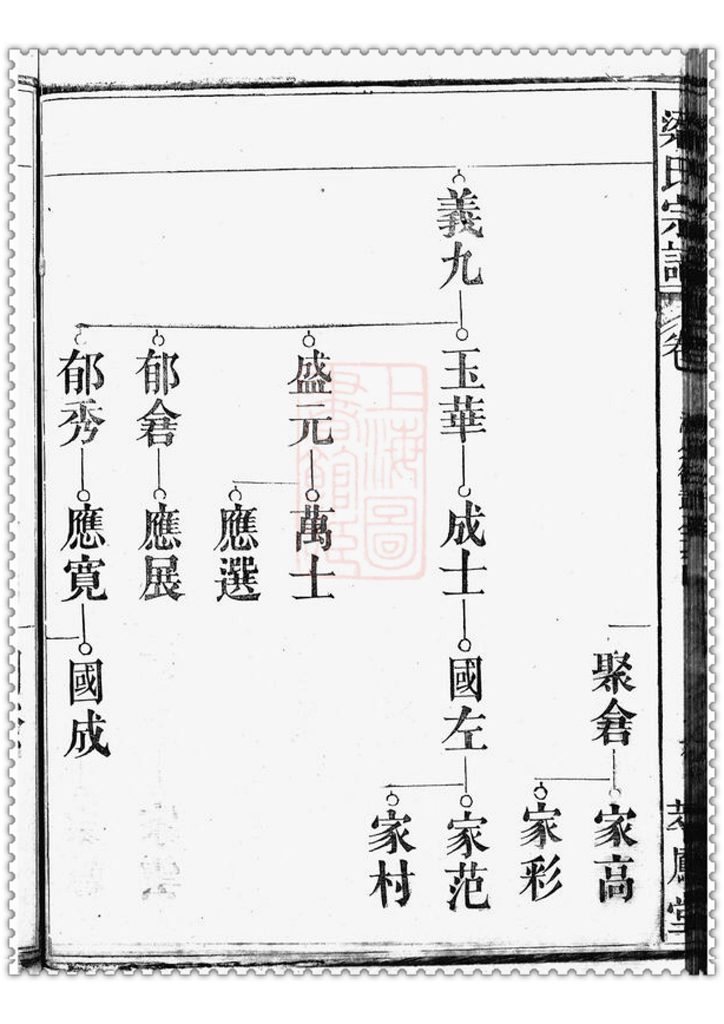 梁氏宗譜
卷
聚倉
家高
家彩
義九
玉華
成士
國左
家范
家村
盛元
萬士
應選
郁倉
應展
郁秀
應寬
國成
上海圖
書館藏